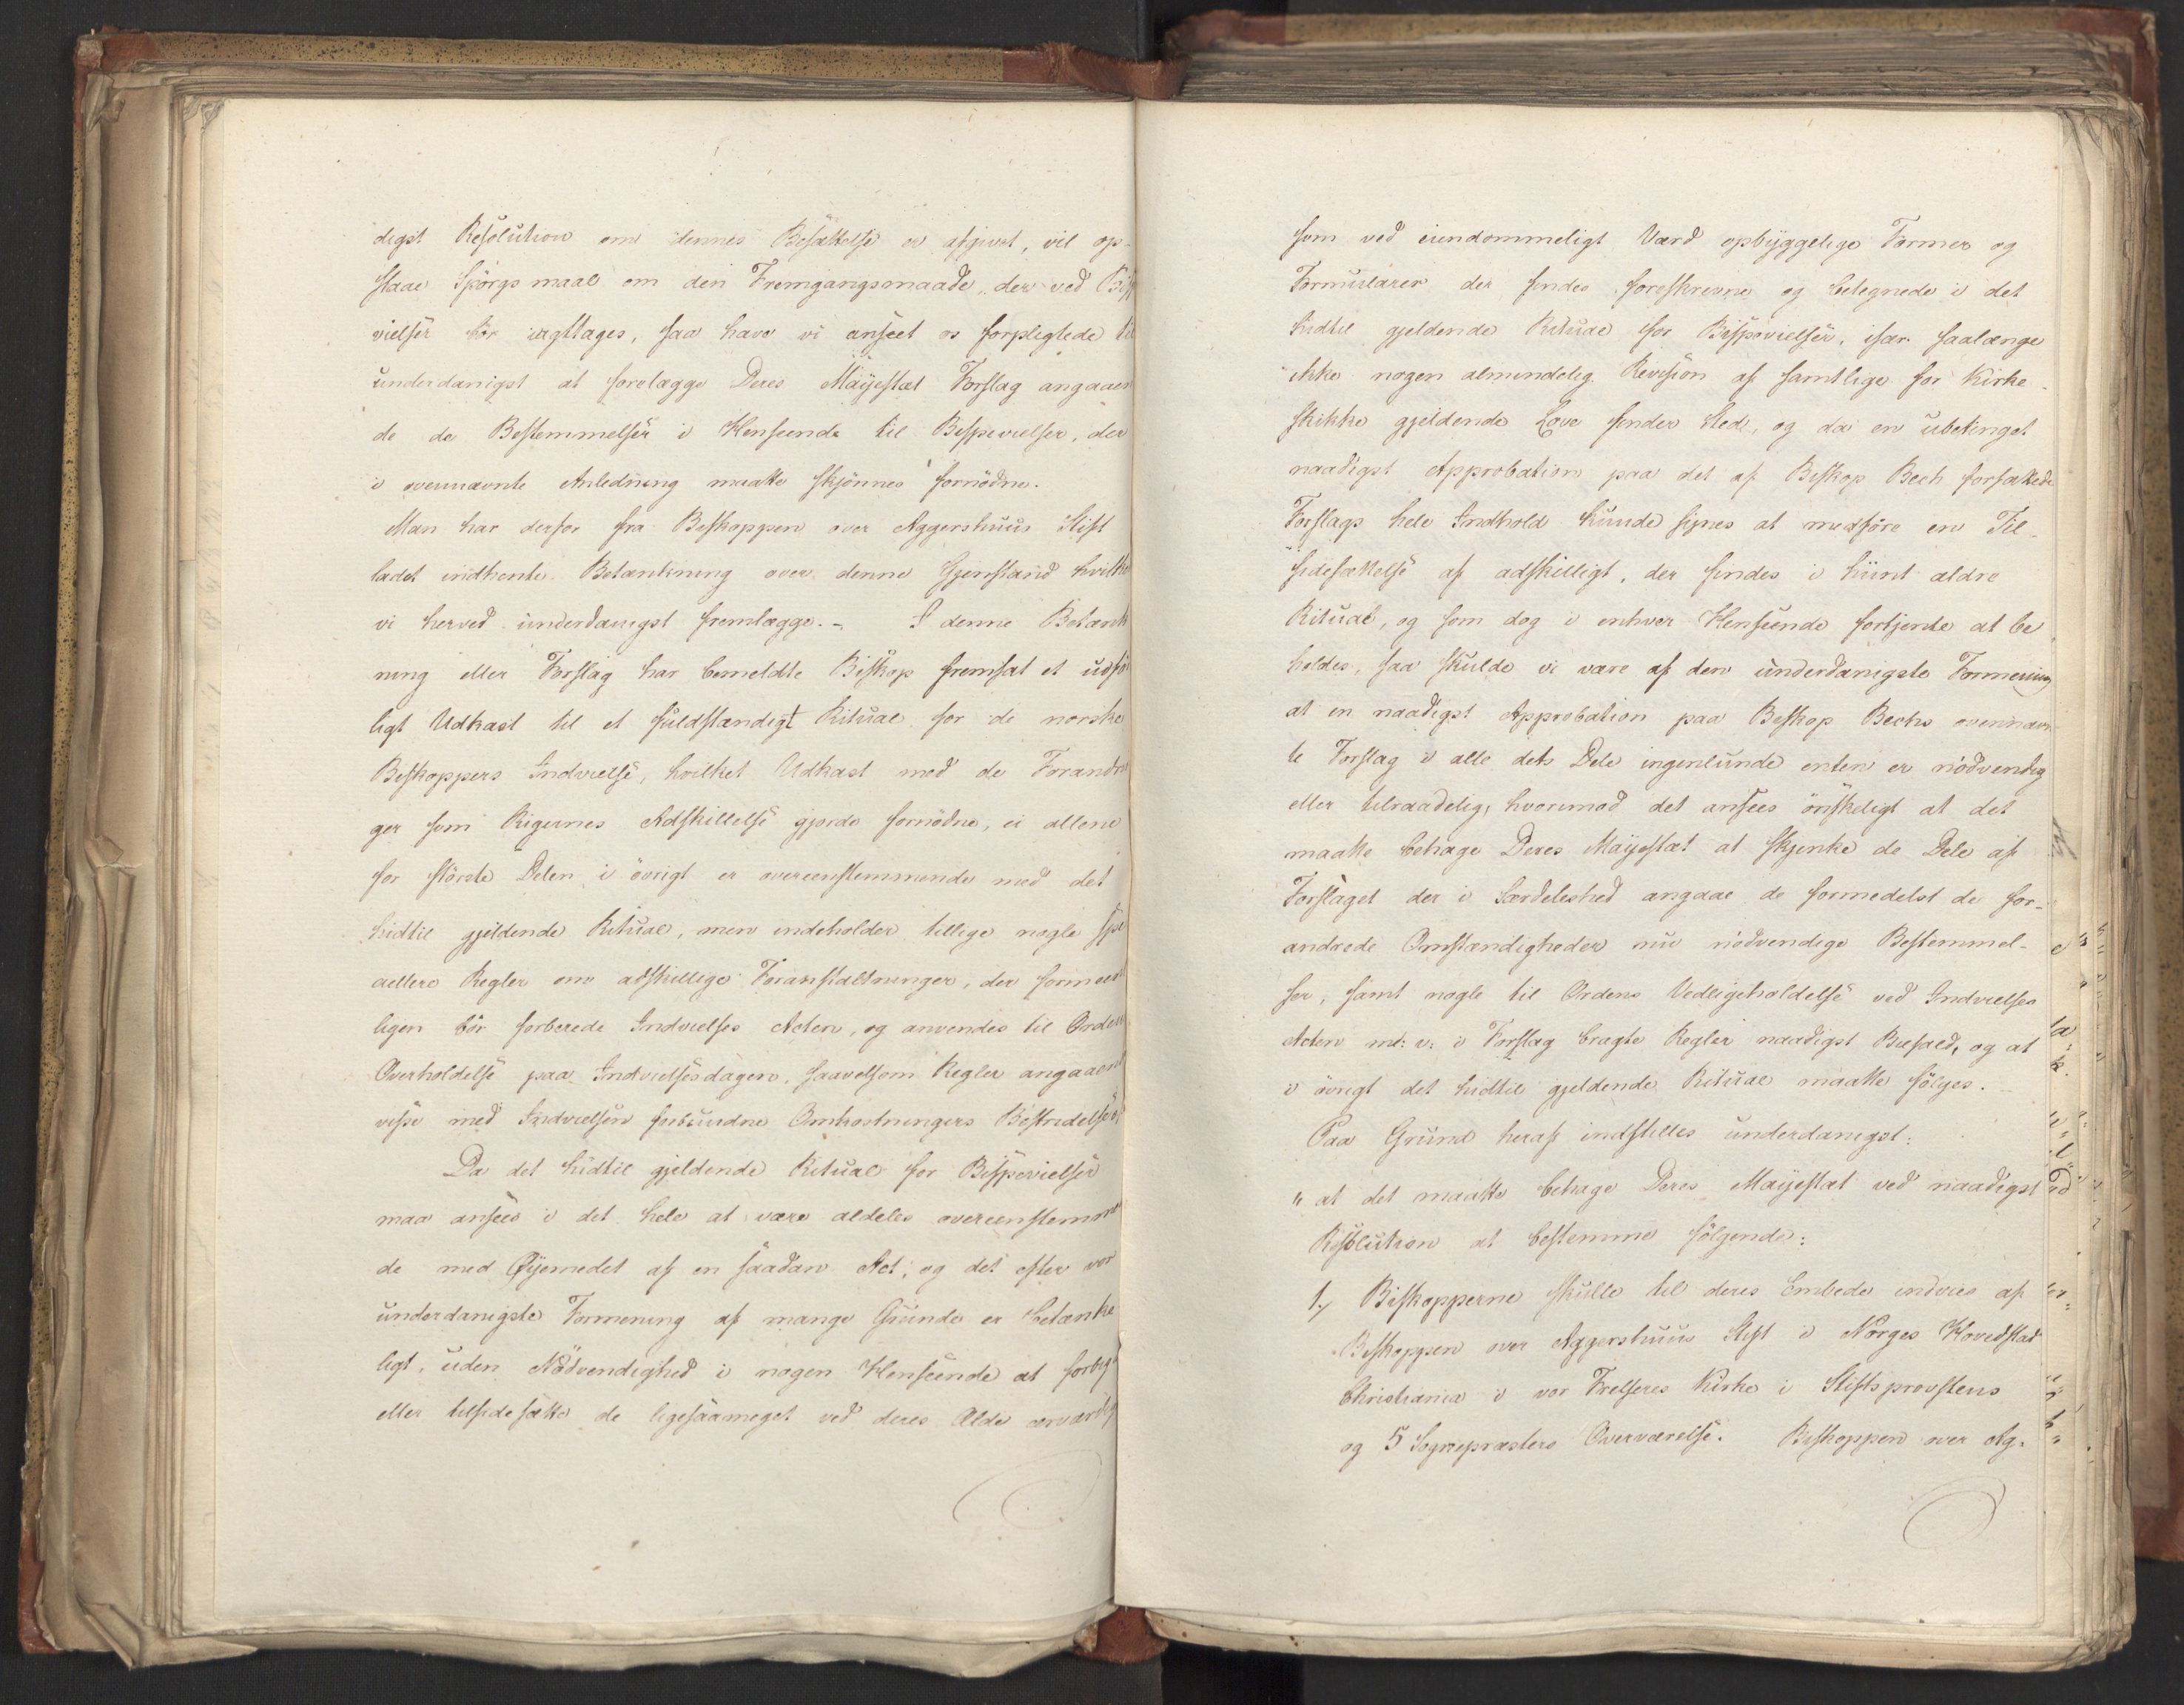 digst Resolution om dennes Besættelse er afgivet, vil op-
staae Spörgsmaal om den Fremgangsmaade, der ved Bisp
vielser bör iagttages, saa have vi anseet os forpligtede til
underdanigst at forelægge Deres Mayestæt Forslag angaaen
de de Bestemmelser i Henseende til Bispevielser, der
i ovennævnte Anledning maatte skjönnes fornödne.
Man har derfor fra Biskoppen over Aggershuus Stift
ladet indhente Betænkning over denne Gjenstand hvilke
vi herved underdanigst fremlægge. - I denne Betænk
ning eller Forslag har bemeldte Biskop fremsat et udfö
ligt Udkast til et fuldstændigt Ritual for de norske
Biskoppers Indvielse, hvilket Udkast med de Forandri
ger som Rigernes Adskillelse gjorde fornödne, ei allene
for störste Delen i övrigt er overeenstemmende med det
hidtil gjeldende Ritual, men indeholder tillige nogle spe
ciellere Regler om adskillige Foranstaltninger, der formeent
ligen bör forberede Indvielses Acten, og anvendes til Ordens
Overholdelse paa Indvielsesdagen, saavelsom Regler angaaend
visse med Indvielsen forbundne Omkostningers Bestridelser,
Da det hidtil gjeldende Ritual for Bispevielser
maa ansees i det hele at være aldeles overeenstemmen
de med Øyemedet af en saadan Act, og det efter vor
underdanigste Formening af mange Grunde er betænke
ligt, uden Nödvendighed i nogen Henseende at forbiga
eller tilsidesætte de ligesaameget ved deres Ælde ærværdig
som ved eiendommeligt Værd opbyggelige Former og
Formularer der findes foreskrevne og betegnede i det
hidtil gjeldende Ritual for Bispevielser, især saalænge
ikke nogen almindelig Revision af samtlige for Kirke-
skikke gjeldende Love finder Sted, og da en ubetinget
naadigst Approbation paa det af Biskop Bech forfattede
Forslags hele Indhold kunde synes at medföre en Til-
sidesættelse af adskilligt, der findes i hiint ældre
Ritual, og som dog i enhver Henseende fortjente at be
holdes, saa skulde vi være af den underdanigste Formening
at en naadigst Approbation paa Biskop Bechs ovennævn
te Forslag i alle dets Dele ingenlunde enten er nödvendig
eller tilraadelig, hvorimod det ansees önskeligt at det
maatte behage Deres Mayestæt at skjenke de Dele af
Forslaget der i Særdeleshed angaae de formedelst de for-
andrede Omstændigheder nu nödvendige Bestemmel-
ser, samt nogle til Ordens Vedligeholdelse ved Indvielses
Acten m: v: i Forslag bragte Regler naadigst Biefald, og at
i övrigt det hidtil gjeldende Ritual maatte fölges. -
Paa Grund heraf indstilles underdanigst:
" at det maatte behage Deres Mayestæt ved naadigst
Resolution at bestemme fölgende:
1.) Biskopperne skulle til deres Embede indvies af
Biskoppen over Aggershuus Stift i Norges Hovedstad
Christiania i vor Frelseres Kirke i Stiftsprovstens
og 5 Sognepræsters Overværelse. Biskoppen over Ag-